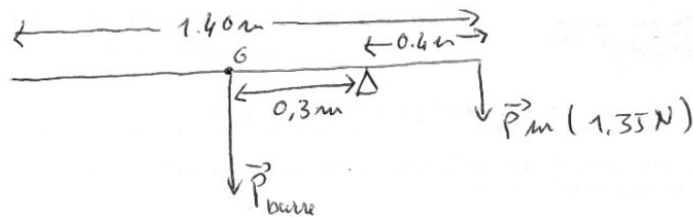 1.40m
0.4m
G
0,3m
Δ
P⃗m (1,35N)
P⃗barre